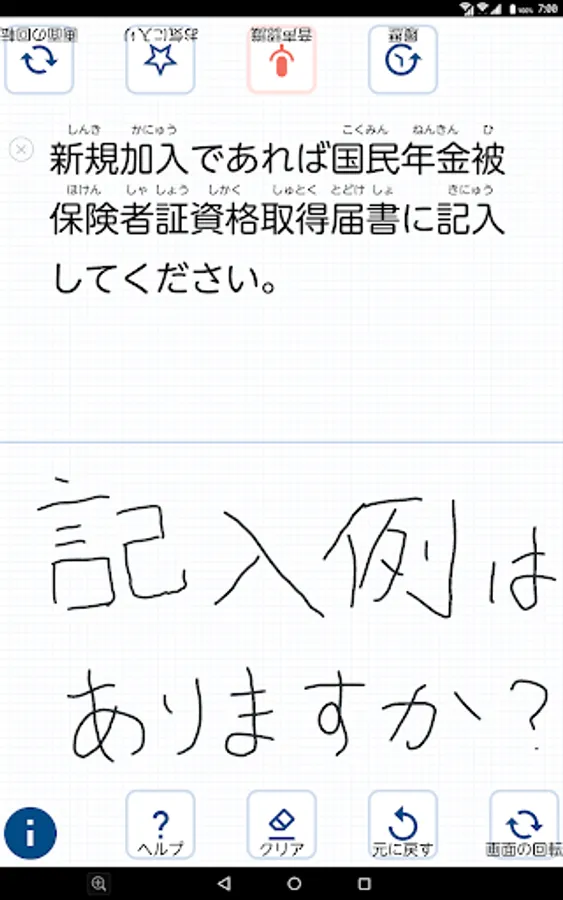 7:00
画面の回転 お気に入り 音声認識 履歴
しんき かにゅう こくみん ねんきん ひ
新規加入であれば国民年金被
ほけん しゃ しょう しかく しゅとく とどけ しょ きにゅう
保険者証資格取得届書に記入
してください。
記入例は
ありますか？
ヘルプ クリア 元に戻す 画面の回転